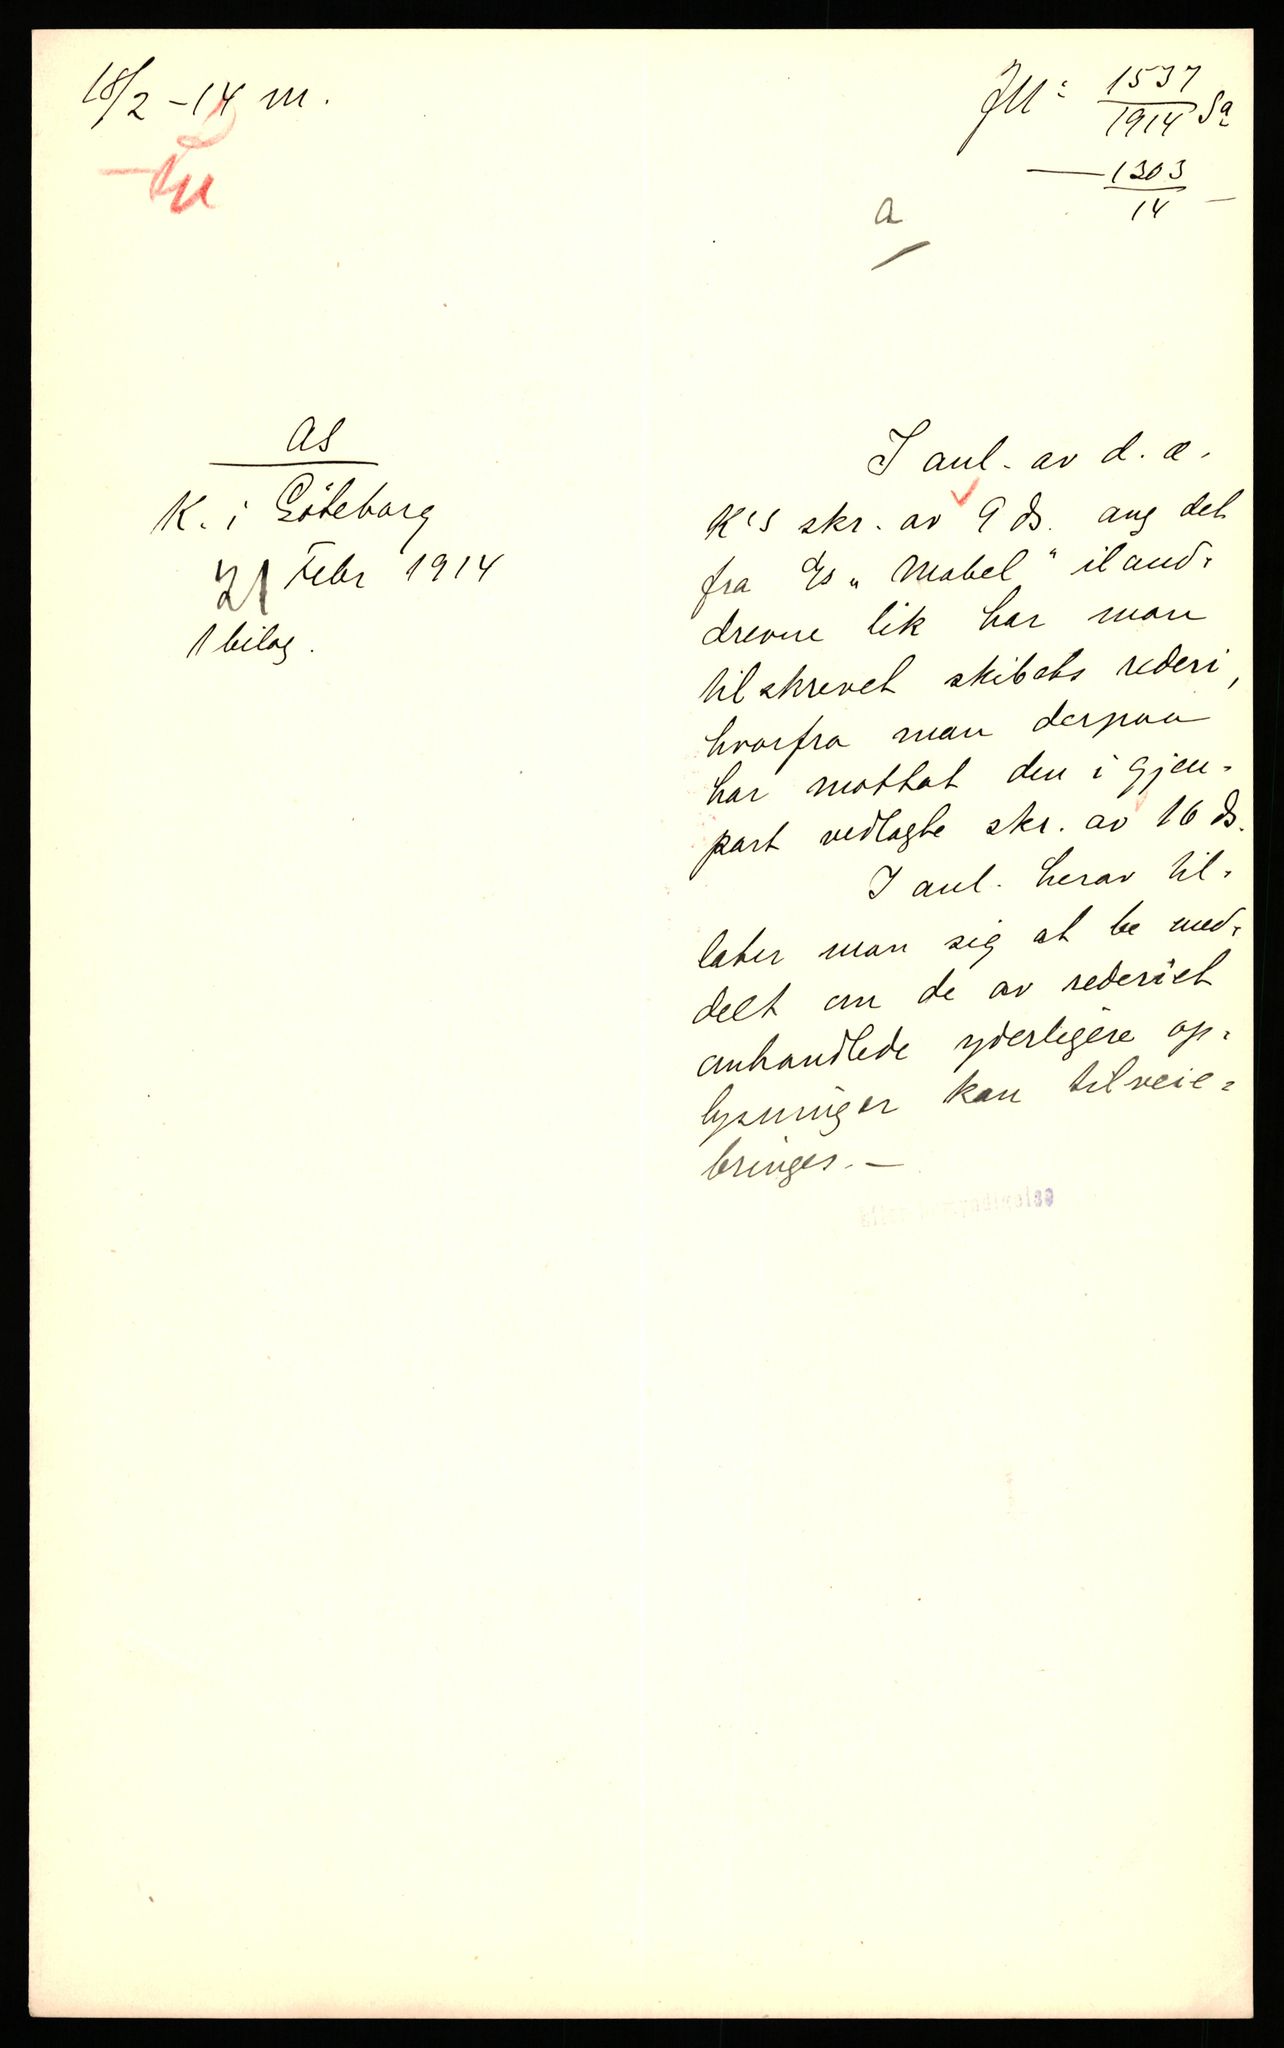 18/2 - 14 m.
JN: 1537/1914 Sa
— 1303/14 —
a
AS
K. i Göteborg
21 Febr 1914
1 bilag.
I anl. av d. æ.
K's skr. av 9 ds. ang det
fra D/s „Mabel" iland-
drevne lik har man
tilskrevet skibets rederi,
hvorfra man derpaa
har mottat den i gjen-
part vedlagte skr. av 16 ds.
I anl. herav til-
later man sig at be med-
delt om de av rederiet
omhandlede yderligere op-
lysninger kan tilveie-
bringes. —